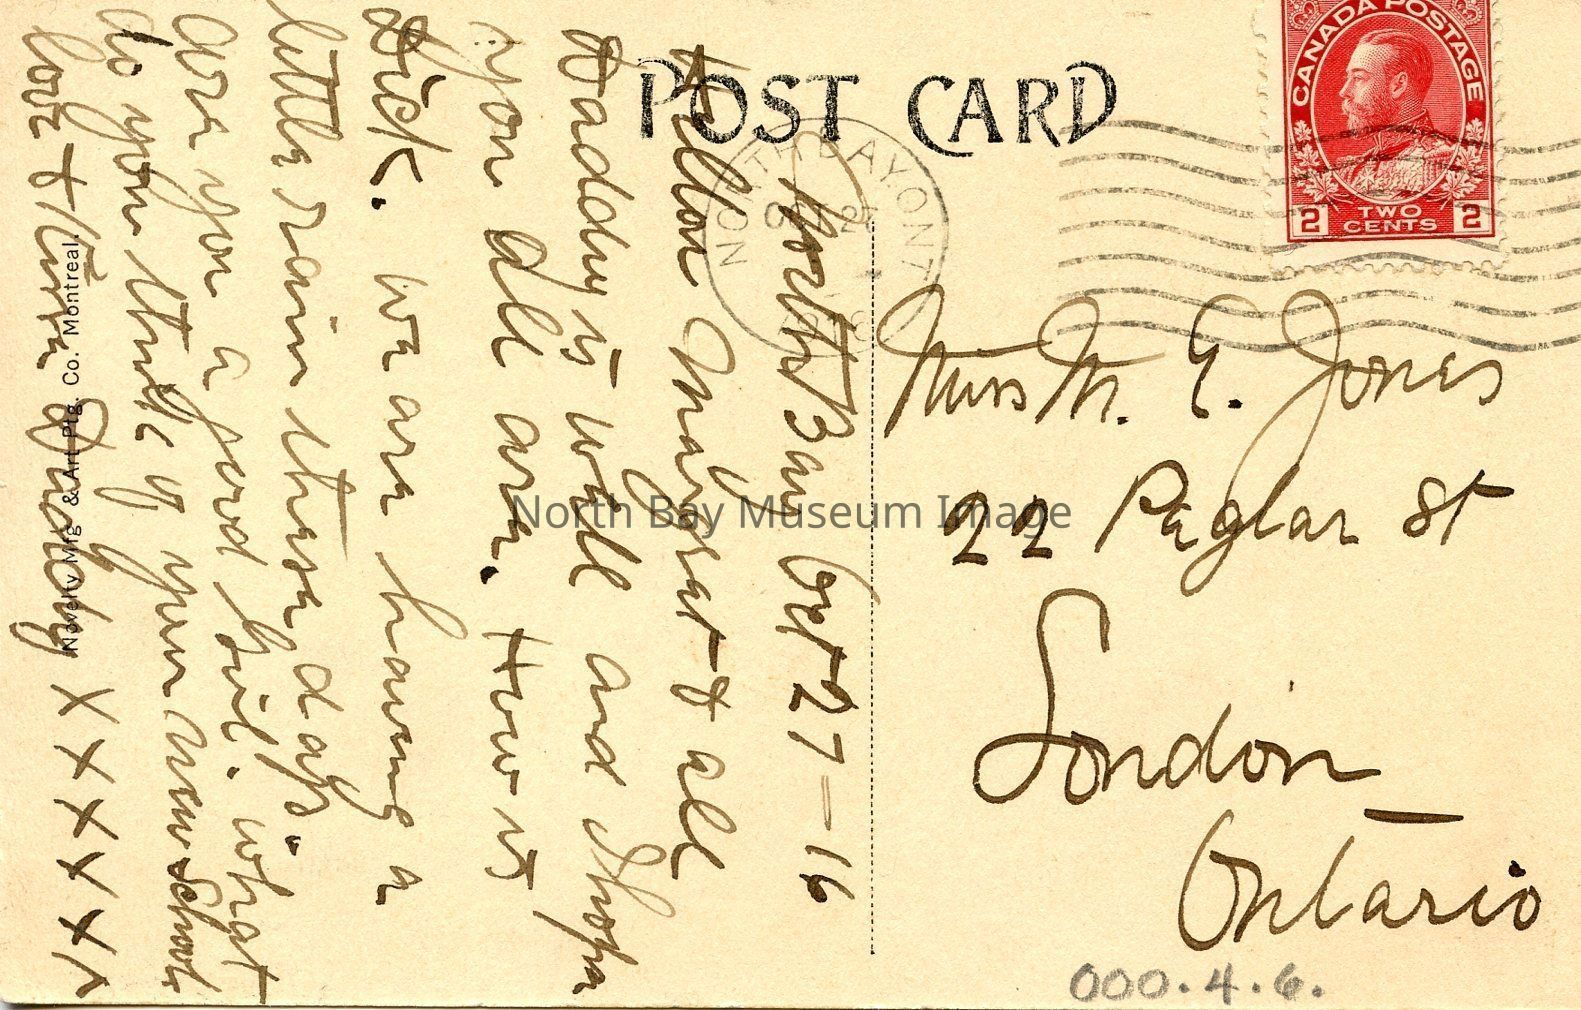 POST CARD
CANADA POSTAGE
2 TWO CENTS 2
NORTH BAY, ONT
North Bay Oct 27-16
Hellow Margrat & all
Daddy is well and I hope
you all are. How is
Dick. we are having a
little rain these days.
are you a good girl. what
do you think of your new School
love & kisses Daddy X X X X X X
Miss M. E. Jones
22 Paglar St
London
Ontario
000.4.6.
Novelty Mfg & Art Ptg. Co. Montreal.
North Bay Museum Image